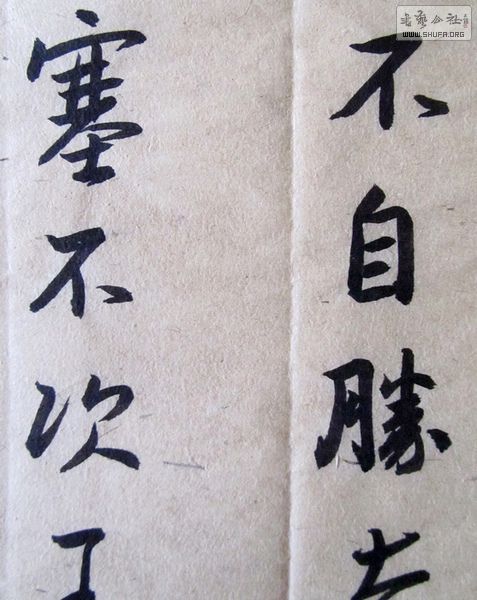 书艺公社
WWW.SHUFA.ORG
不自勝
塞不次